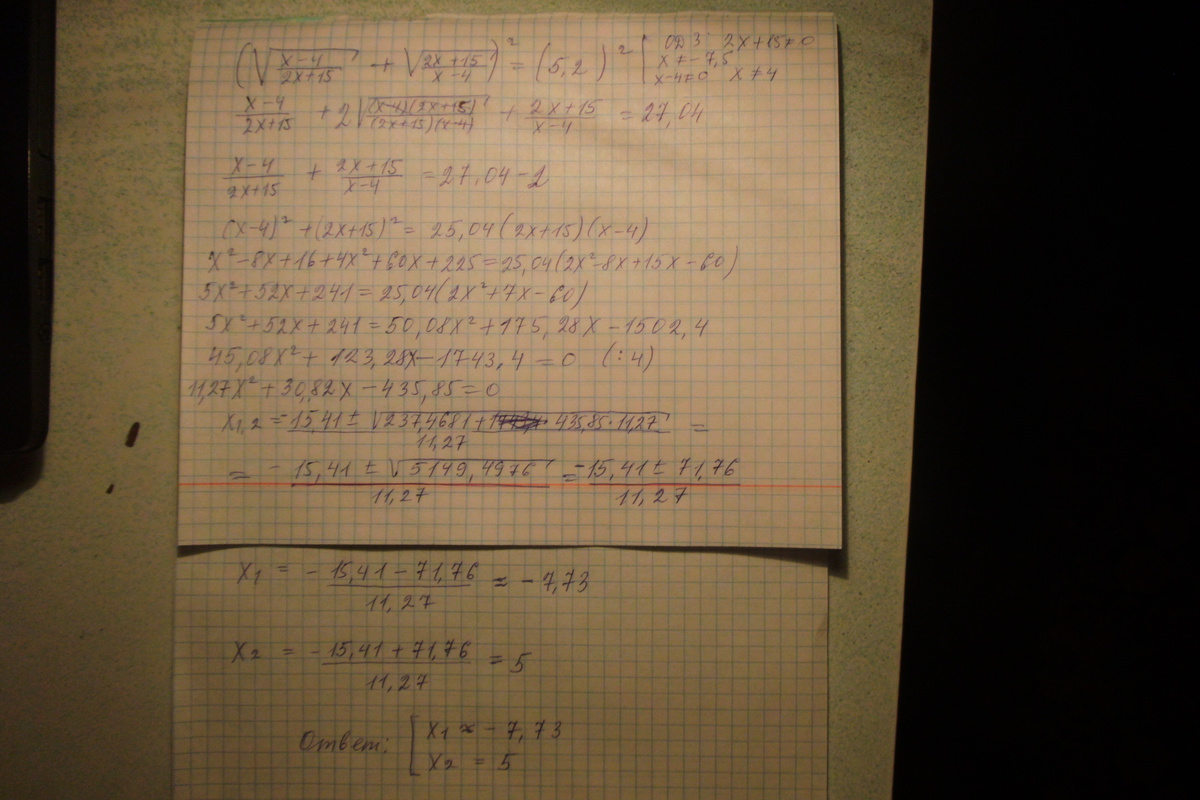 (√((x-4)/(2x+15)) + √((2x+15)/(x-4)))² = (5,2)² { ОДЗ: 2x+15≠0
x≠-7,5
x-4≠0 x≠4
(x-4)/(2x+15) + 2√((x-4)(2x+15)/(2x+15)(x-4)) + (2x+15)/(x-4) = 27,04
(x-4)/(2x+15) + (2x+15)/(x-4) = 27,04-2
(x-4)² + (2x+15)² = 25,04(2x+15)(x-4)
x²-8x+16+4x²+60x+225=25,04(2x²-8x+15x-60)
5x²+52x+241=25,04(2x²+7x-60)
5x²+52x+241=50,08x²+175,28x-1502,4
45,08x²+123,28x-1743,4=0 (:4)
11,27x²+30,82x-435,85=0
x1,2 = (-15,41 ± √(237,4681+435,85·11,27))/11,27 =
= (-15,41 ± √5149,4976)/11,27 = (-15,41 ± 71,76)/11,27
x1 = -(15,41-71,76)/11,27 ≈ -7,73
x2 = (-15,41+71,76)/11,27 = 5
Ответ: [ x1 ≈ -7,73
x2 = 5